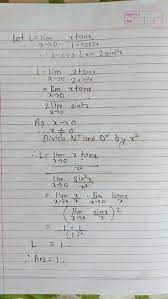 Let L = lim x→0 x tanx / 1-cos2x
∴ 1-cos2x = 2sin²x
L = lim x→0 x tanx / 2sin²x
= lim x→0 x tanx
2 lim sin²x
As x→0
x ≠ 0
Divide Nʳ and Dʳ by x²
∴ L = lim x→0 x tanx / x²
lim x→0 sin²x / x²
= lim x→0 x/x · lim x→0 tanx / x
(lim x→0 sinx / x)²
= 1 · 1 / (1)²
L = 1.
∴ Ans = 1.